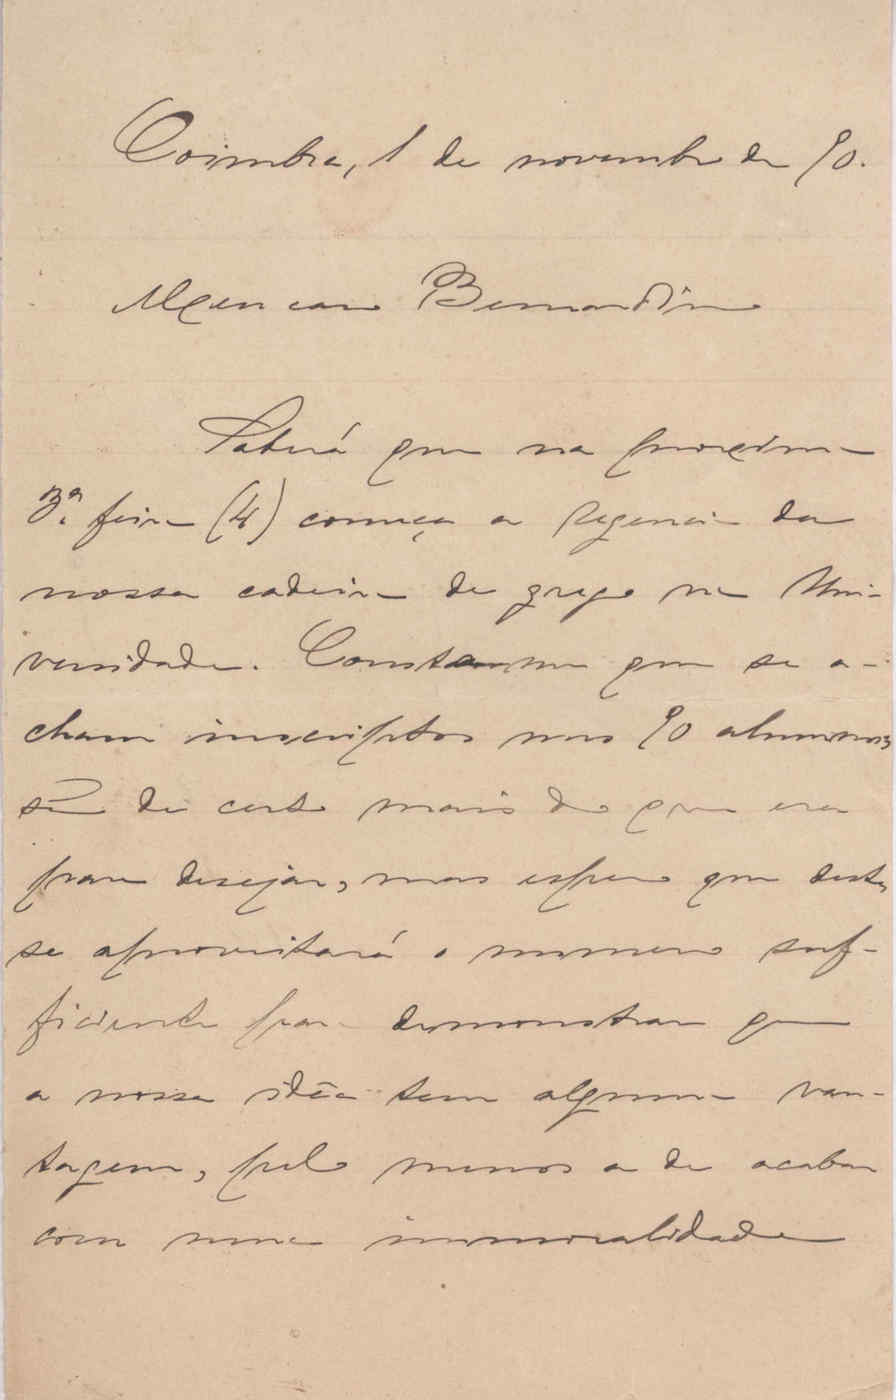 Coimbra, 1 de novembro de 90.
Meu caro Bernardino
Saberá que na proxima
3.ª feira (4) começa a regencia da
nossa cadeira de grego na Uni-
versidade. Consta-me que se a-
cham inscriptos uns 90 alumnos;
são de certo mais do que era
para desejar, mas espero que destes
se aproveitará o numero suf-
ficiente para demonstrar que
a nossa idêa tem alguma van-
tagem, pelo menos a de acabar
com uma immoralidade